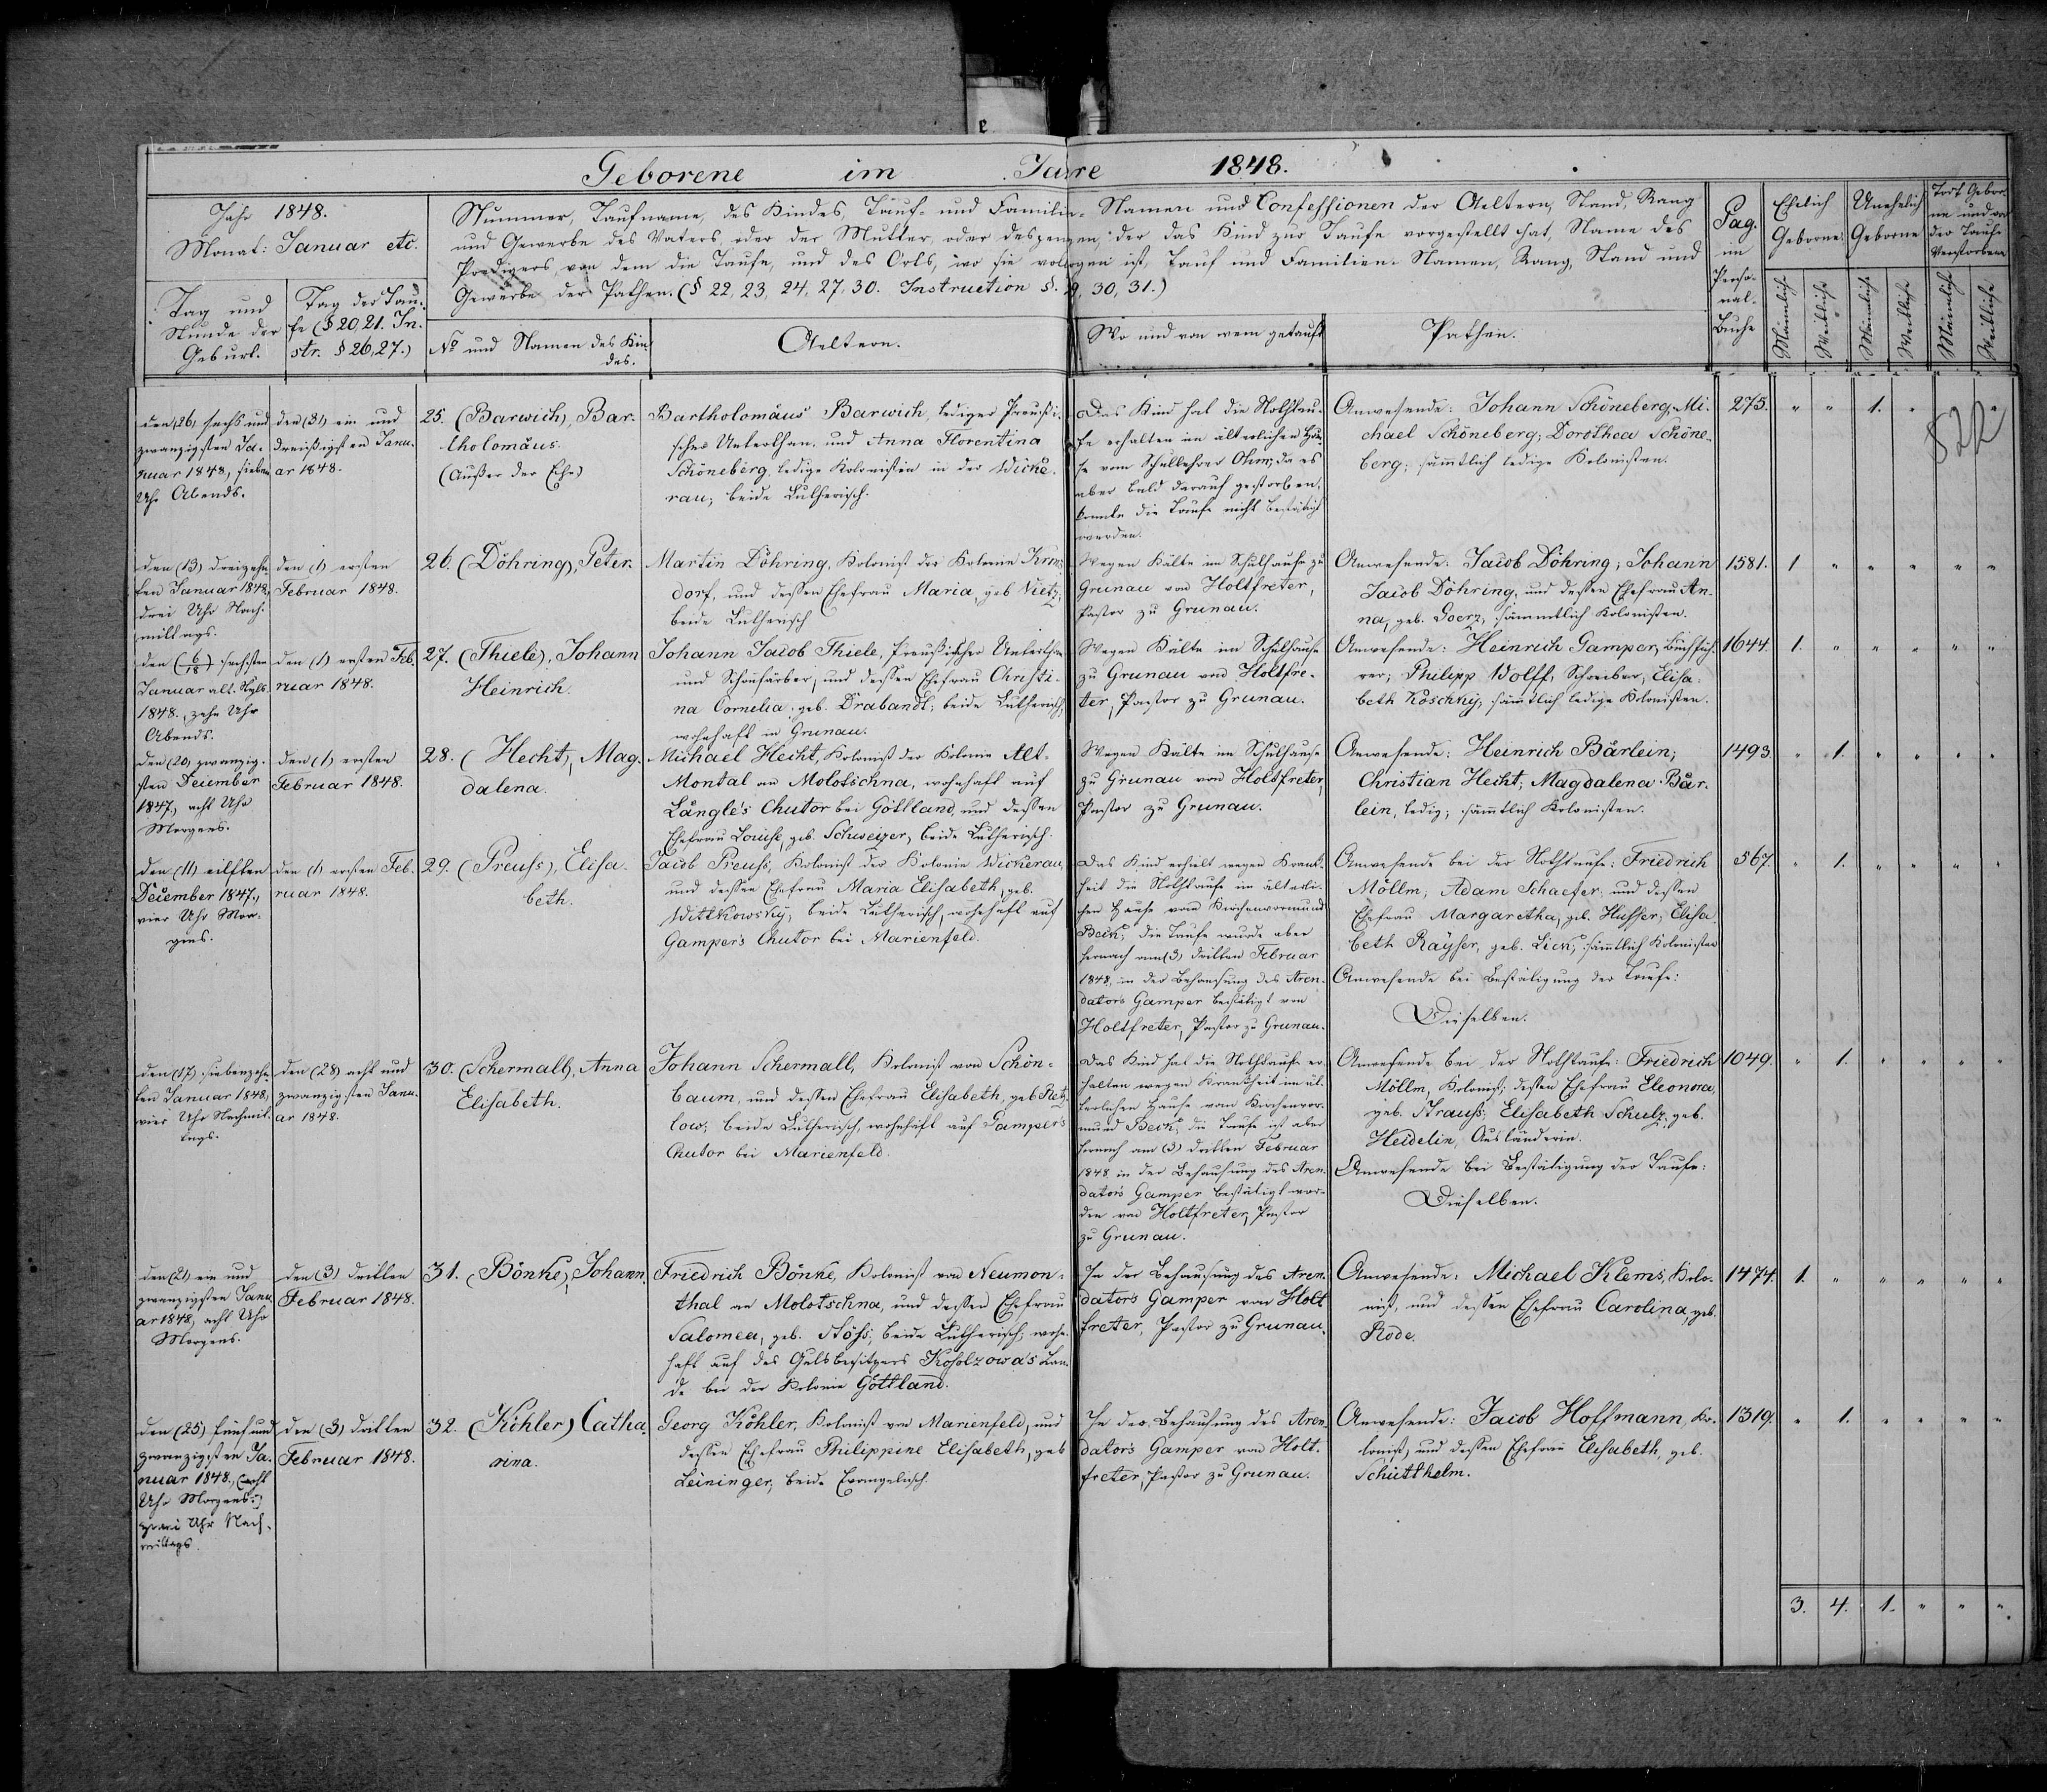 e
Geborene im Jahre 1848.
Jahr 1848.
Monat: Januar etc.
Tag und
Stunde der
Geburt.
Tag der Tau-
fe (§ 20, 21. In-
str. § 26, 27.)
Nummer, Taufname, des Kindes, Tauf- und Familien-Namen und Confessionen der Aeltern, Stand, Rang
und Gewerbe des Vaters oder der Mutter, oder desjenigen, der das Kind zur Taufe vorgestellt hat, Name des
Predigers, von dem die Taufe, und des Orts, wo sie vollzogen ist, Tauf und Familien-Namen, Rang, Stand und
Gewerbe der Pathen. (§ 22, 23, 24, 27, 30. Instruction §. 29, 30, 31.)
No und Namen des Kin-
des.
Aeltern.
Wo und von wem getauft
Pathen.
Pag.
im
Perso-
nal-
Buche
Ehelich
Geborne
Unehelich
Geborne
Todt Gebor-
ne und vor
der Taufe
Verstorbene
Männlich
Weibliche
Männlich
Weibliche
Männlich
Weibliche
822
den (26) sechs und
zwanzigsten Ja-
nuar 1848, sieben
Uhr Abends.
den (31) ein und
dreißigsten Janu-
ar 1848.
25. (Barwich), Bar-
tholomäus.
(Außer der Ehe)
Bartholomäus Barwich, lediger Preußi-
scher Unterthan, und Anna Florentina
Schöneberg, ledige Kolonistin in der Wicke-
rau; beide Lutherisch.
Das Kind hat die Nothtau-
fe erhalten im älterlichen Hau-
se vom Schullehrer Ohm; da es
aber bald darauf gestorben,
konnte die Taufe nicht bestätigt
werden.
Anwesende: Johann Schöneberg, Mi-
chael Schöneberg; Dorothea Schöne-
berg; sämmtlich ledige Kolonisten.
275. " " 1. " "
den (13) dreizehn-
ten Januar 1848,
drei Uhr Nach-
mittags.
den (1) ersten
Februar 1848.
26. (Döhring), Peter.
Martin Döhring, Kolonist der Kolonie Kron-
dorf, und dessen Ehefrau Maria, geb. Vietz,
beide Lutherisch
Wegen Kälte im Schulhause zu
Grunau von Holtfreter,
Pastor zu Grunau.
Anwesende: Jacob Döhring; Johann
Jacob Döhring, und dessen Ehefrau An-
na, geb. Goerz, sämmtlich Kolonisten.
1581. 1 " " " " "
den (6/18) sechsten
Januar alt. Styls
1848., zehn Uhr
Abends.
den (1) ersten Feb-
ruar 1848.
27. (Thiele), Johann
Heinrich.
Johann Jacob Thiele, Preußischer Unterthan
und Schönfärber, und dessen Ehefrau Christi-
na Cornelia, geb. Drabandt; beide Lutherisch,
wohnhaft in Grunau.
Wegen Kälte im Schulhause
zu Grunau von Holtfre-
ter, Pastor zu Grunau.
Anwesende: Heinrich Gamper, Buchfüh-
rer; Philipp Wolff, Schreiber; Elisa-
beth Koschky; sämmtlich ledige Kolonisten.
1644. 1. " " " " "
den (20) zwanzig-
sten December
1847, acht Uhr
Morgens.
den (1) ersten
Februar 1848.
28. (Hecht), Mag-
dalena.
Michael Hecht, Kolonist der Kolonie Alt-
Montal an Molotschna, wohnhaft auf
Längle's Chutor bei Göttland, und dessen
Ehefrau Louise, geb. Schweizer, beide Lutherisch.
Wegen Kälte im Schulhause
zu Grunau von Holtfreter,
Pastor zu Grunau.
Anwesende: Heinrich Bärlein;
Christian Hecht; Magdalena Bär-
lein, ledig; sämmtlich Kolonisten.
1493. " 1. " " " "
den (11) eilften
December 1847,
vier Uhr Mor-
gens.
den (1) ersten Feb-
ruar 1848.
29. (Preuss), Elisa-
beth.
Jacob Preuss, Kolonist der Kolonie Wickerau,
und dessen Ehefrau Maria Elisabeth, geb.
Wittkowsky, beide Lutherisch, wohnhaft auf
Gamper's Chutor bei Marienfeld.
Das Kind erhielt wegen Krank-
heit die Nothtaufe im älterli-
chen Hause vom Kirchenvormund
Beck; die Taufe wurde aber
hernach am (3) dritten Februar
1848, in der Behausung des Aren-
dators Gamper bestätigt von
Holtfreter, Pastor zu Grunau.
Anwesende bei der Nothtaufe: Friedrich
Möllm; Adam Schaefer, und dessen
Ehefrau Margaretha, geb. Husser; Elisa-
beth Raysser, geb. Lick; sämmtlich Kolonisten
Anwesende bei Bestätigung der Taufe:
Dieselben.
567. " 1. " " " "
den (17) siebenzehn-
ten Januar 1848,
vier Uhr Nachmit-
tags.
den (28) acht und
zwanzigsten Janu-
ar 1848.
30. (Schermall), Anna
Elisabeth.
Johann Schermall, Kolonist von Schön-
baum, und dessen Ehefrau Elisabeth, geb. Retz-
low; beide Lutherisch, wohnhaft auf Gamper's
Chutor bei Marienfeld.
Das Kind hat die Nothtaufe er-
halten wegen Krankheit im äl-
terlichen Hause vom Kirchenvor-
mund Beck; die Taufe ist aber
hernach am (3) dritten Februar
1848 in der Behausung des Aren-
dators Gamper bestätigt wor-
den von Holtfreter, Pastor
zu Grunau.
Anwesende bei der Nothtaufe: Friedrich
Möllm, Kolonist; dessen Ehefrau Eleonora,
geb. Strauss; Elisabeth Schulz, geb.
Heidelin, Ausländerin.
Anwesende bei Bestätigung der Taufe:
Dieselben.
1049. " 1. " " " "
den (21) ein und
zwanzigsten Janu-
ar 1848, acht Uhr
Morgens.
den (3) dritten
Februar 1848.
31. (Bönke), Johann.
Friedrich Bönke, Kolonist von Neumon-
thal an Molotschna, und dessen Ehefrau
Salomea, geb. Stöhs; beide Lutherisch; wohn-
haft auf des Gutsbesitzers Kosolzowa's Lan-
de bei der Kolonie Göttland.
In der Behausung des Aren-
dators Gamper von Holt-
freter, Pastor zu Grunau.
Anwesende: Michael Klems, Kolo-
nist, und dessen Ehefrau Carolina, geb.
Rode.
1474. 1. " " " " "
den (25) fünf und
zwanzigsten Ja-
nuar 1848., (acht
Uhr Morgens)
zwei Uhr Nach-
mittags.
den (3) dritten
Februar 1848.
32. (Köhler) Catha-
rina.
Georg Köhler, Kolonist von Marienfeld, und
dessen Ehefrau Philippine Elisabeth, geb
Leininger; beide Evangelisch.
In der Behausung des Aren-
dators Gamper von Holt-
freter, Pastor zu Grunau.
Anwesende: Jacob Hoffmann, Ko-
lonist, und dessen Ehefrau Elisabeth, geb.
Schütthelm.
1319. " 1. " " " "
3. 4. 1. " " "